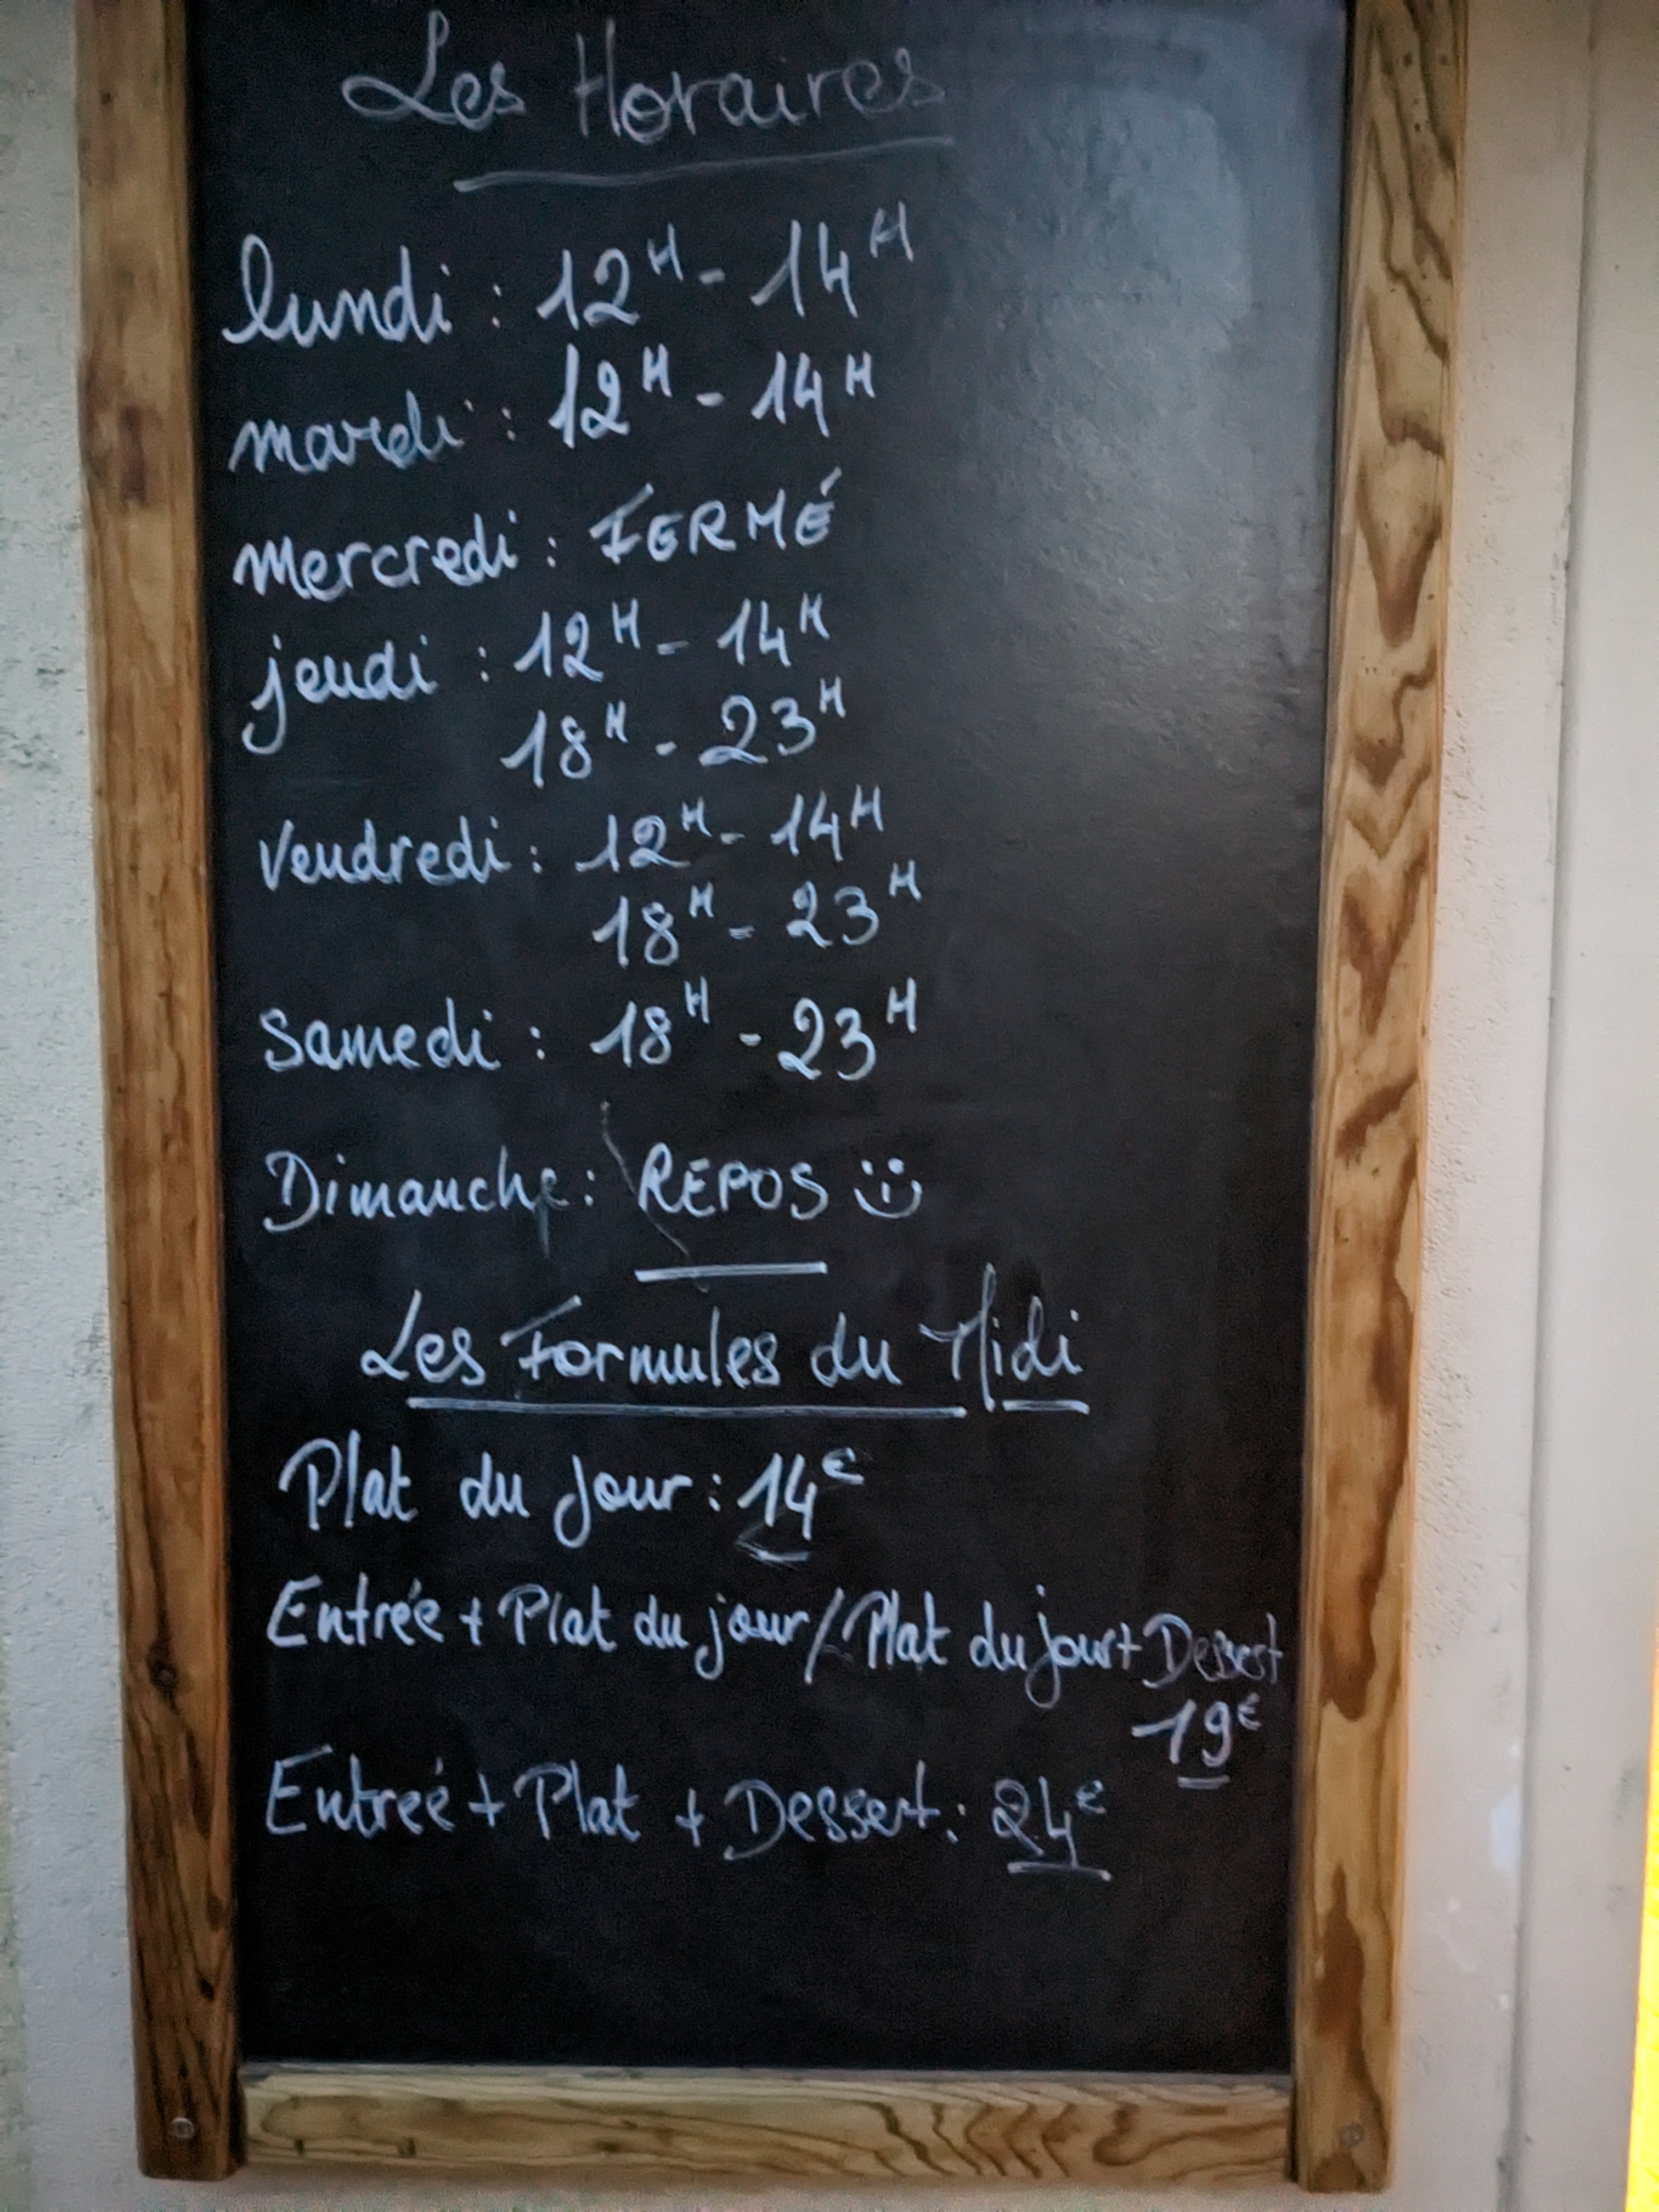 Les Horaires
lundi : 12H - 14H
mardi : 12H - 14H
mercredi : FERMÉ
jeudi : 12H - 14H
18H - 23H
Vendredi : 12H - 14H
18H - 23H
Samedi : 18H - 23H
Dimanche : REPOS
Les Formules du Midi
Plat du Jour : 14€
Entrée + Plat du jour / Plat du jour + Dessert
19€
Entreé + Plat + Dessert : 24€